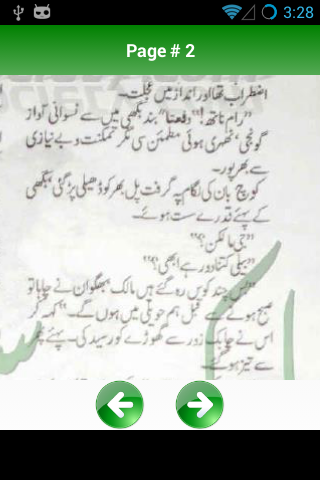 3:28
Page # 2
اضطراب تھا اور انداز میں عجلت۔
”رام ناتھ!“ دفعتاً بند بگھی میں سے نسوانی آواز
گونجی، ٹھہری ہوئی مطمئن سی مگر تمکنت و بے نیازی
سے بھرپور۔
کوچ بان کی لگام پہ گرفت پل بھر کو ڈھیلی پڑ گئی، بگھی
کے پہیے قدرے سست ہوئے۔
”جی مالکن؟“
”بیلی کتنا دور ہے ابھی؟“
”بس چند کوس رہ گئے ہیں مالک، بھگوان نے چاہا تو
صبح ہونے سے قبل ہم حویلی میں ہوں گے۔“ کہہ کر
اس نے چابک زور سے گھوڑے کو رسید کی۔ پہیے پھر
سے تیز ہو گئے۔